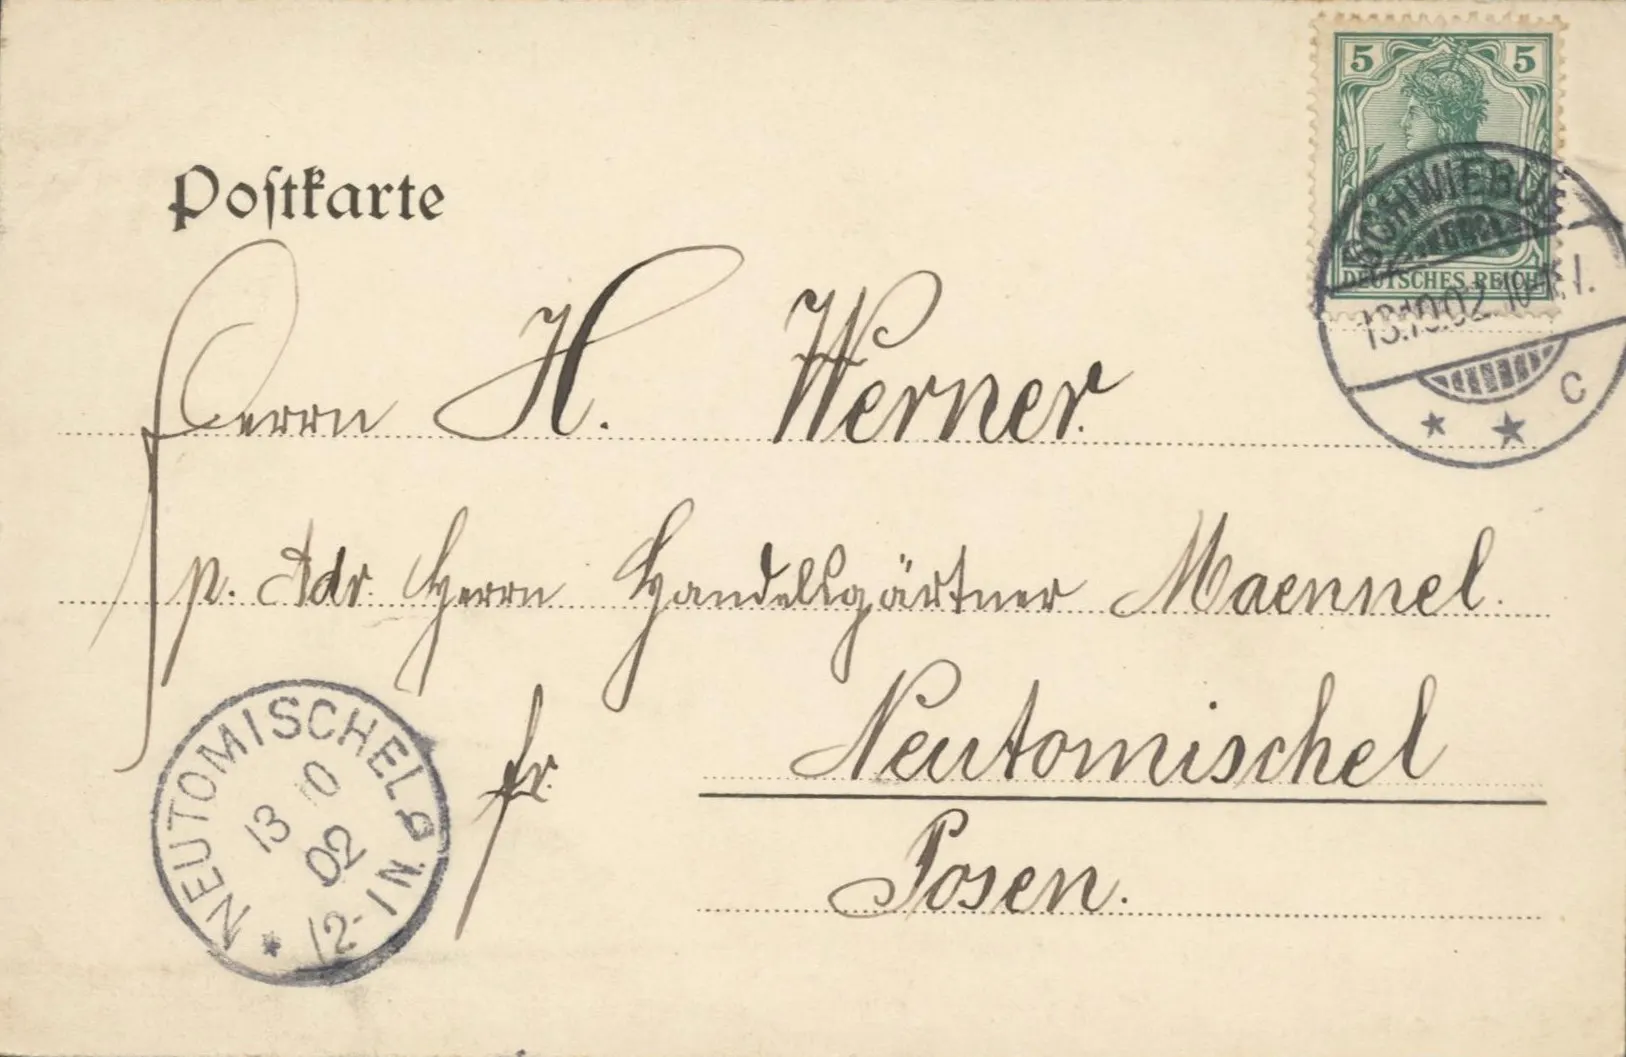 5 5
DEUTSCHES REICH
SCHWIEBUS
13.10.02. 10-11.
C
Poſtkarte
Herrn H. Werner.
p. Adr. Herrn Handelsgärtner Maennel.
fr. Neutomischel
Posen.
NEUTOMISCHEL
13 10
02
12-1 N.